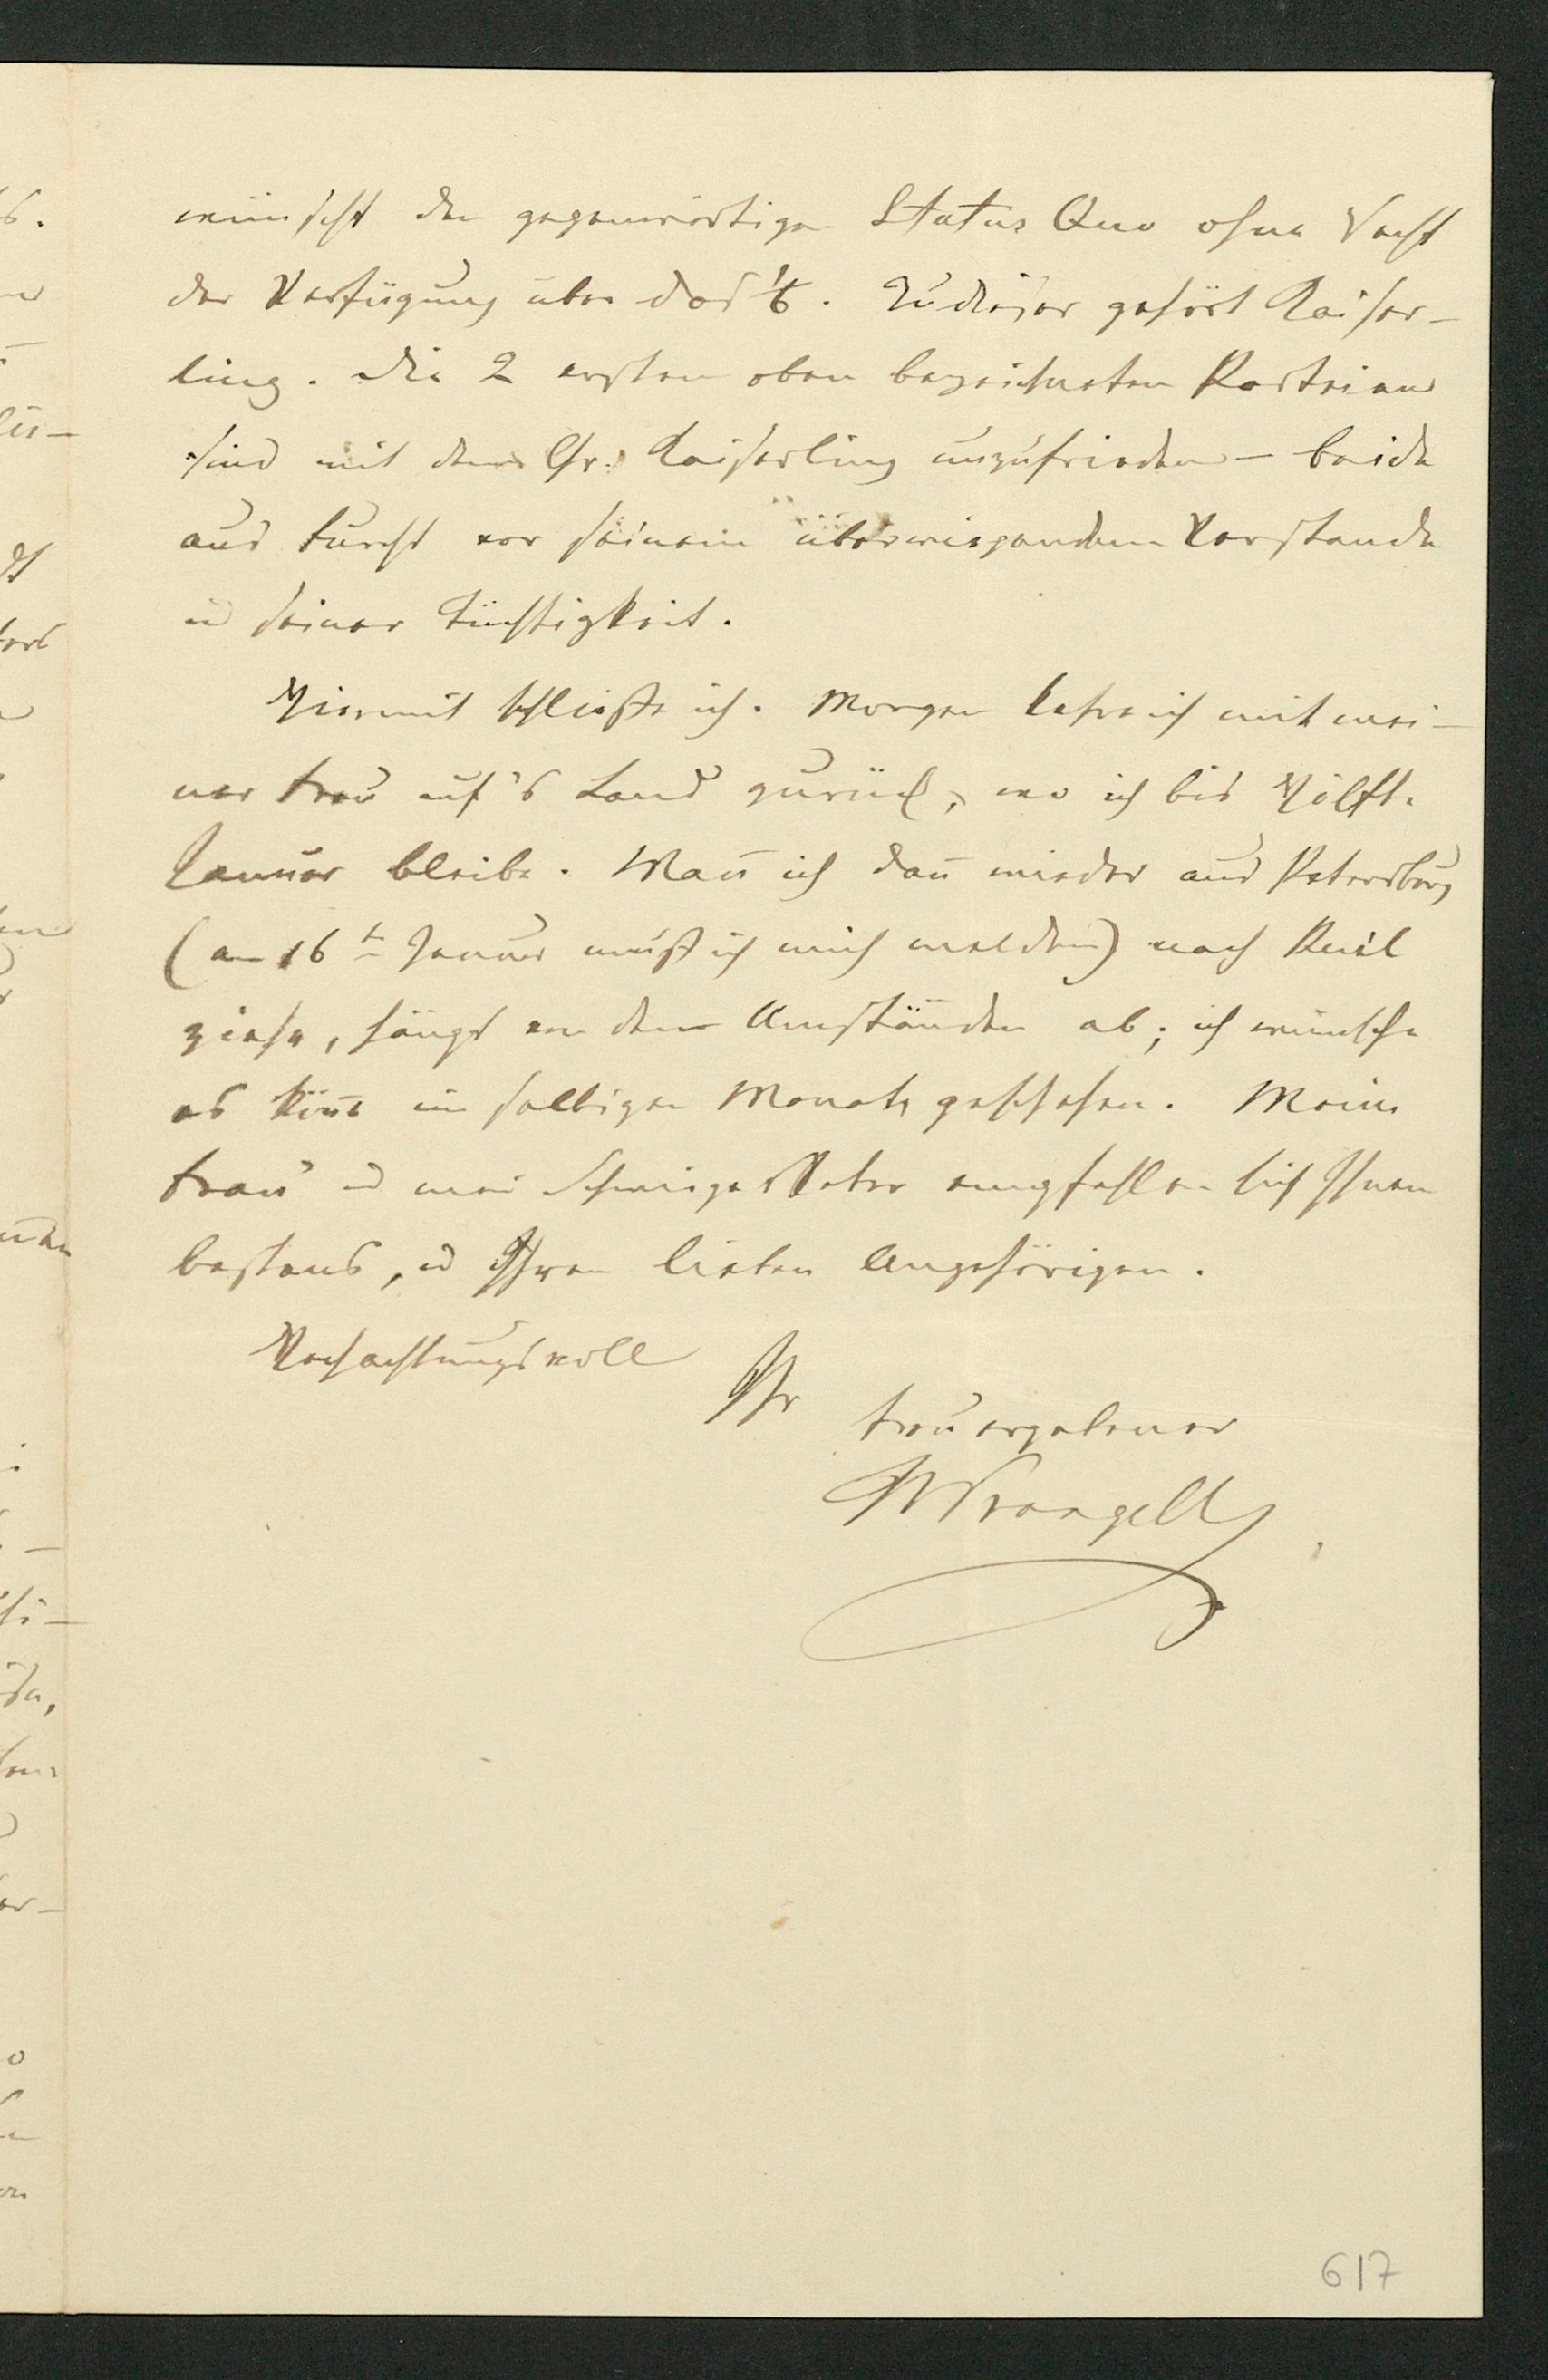 wünscht den gegenwärtigen Status Quo ohne Recht
der Verfügung über das %. Zu dieser gehört Kaiser-
ling. Die 2 ersten oben bezeichneten Parteien
sind mit dem Gr. Kaiserling unzufrieden – beide
aus Furcht vor seinem überwiegenden Verstande
u seiner Tüchtigkeit.
Hiermit schließe ich. Morgen kehre ich mit mei-
ner Frau auf's Land zurück, wo ich bis Hälfte
Januar bleibe. Wañ ich dañ wieder aus Petersburg
(am 16ten Januar muß ich mich melden) nach
ziehe, hängt von den Umständen ab; ich wünsche
es köñe im selbigen Monate geschehen. Meine
Frau u mein Schwiegervater empfehlen sich Ihnen
bestens, u Ihren lieben Angehörigen.
Hochachtungsvoll
Ihr
treuergebener
Wrangell
617